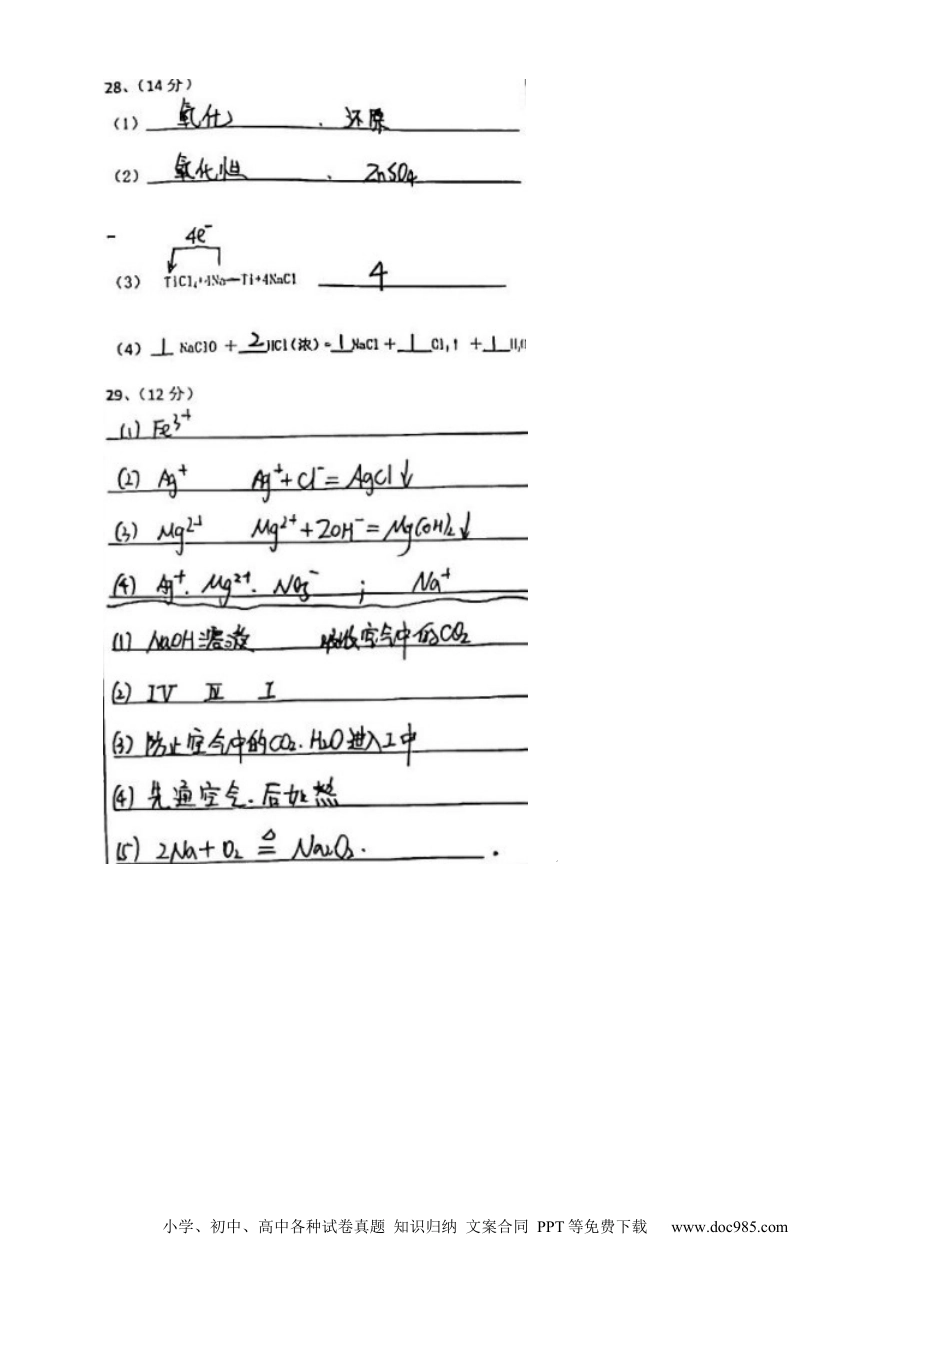 28、（14 分）
（1） 氧化 、 还原
（2） 氧化性 、 ZnSO4
4e⁻
（3） TiCl₄+4Na—Ti+4NaCl 4
（4） 1 NaClO + 2 HCl（浓）= 1 NaCl + 1 Cl₂↑ + 1 H₂O
29、（12 分）
(1) Fe³⁺
(2) Ag⁺ Ag⁺+Cl⁻=AgCl↓
(3) Mg²⁺ Mg²⁺+2OH⁻=Mg(OH)₂↓
(4) Ag⁺、Mg²⁺、NO₃⁻ ; Na⁺
(1) NaOH溶液 吸收空气中的CO₂
(2) IV Ⅲ I
(3) 防止空气中的CO₂、H₂O进入I中
(4) 先通空气、后加热
(5) 2Na+O₂ ≜ Na₂O₂.
小学、初中、高中各种试卷真题 知识归纳 文案合同 PPT 等免费下载 www.doc985.com